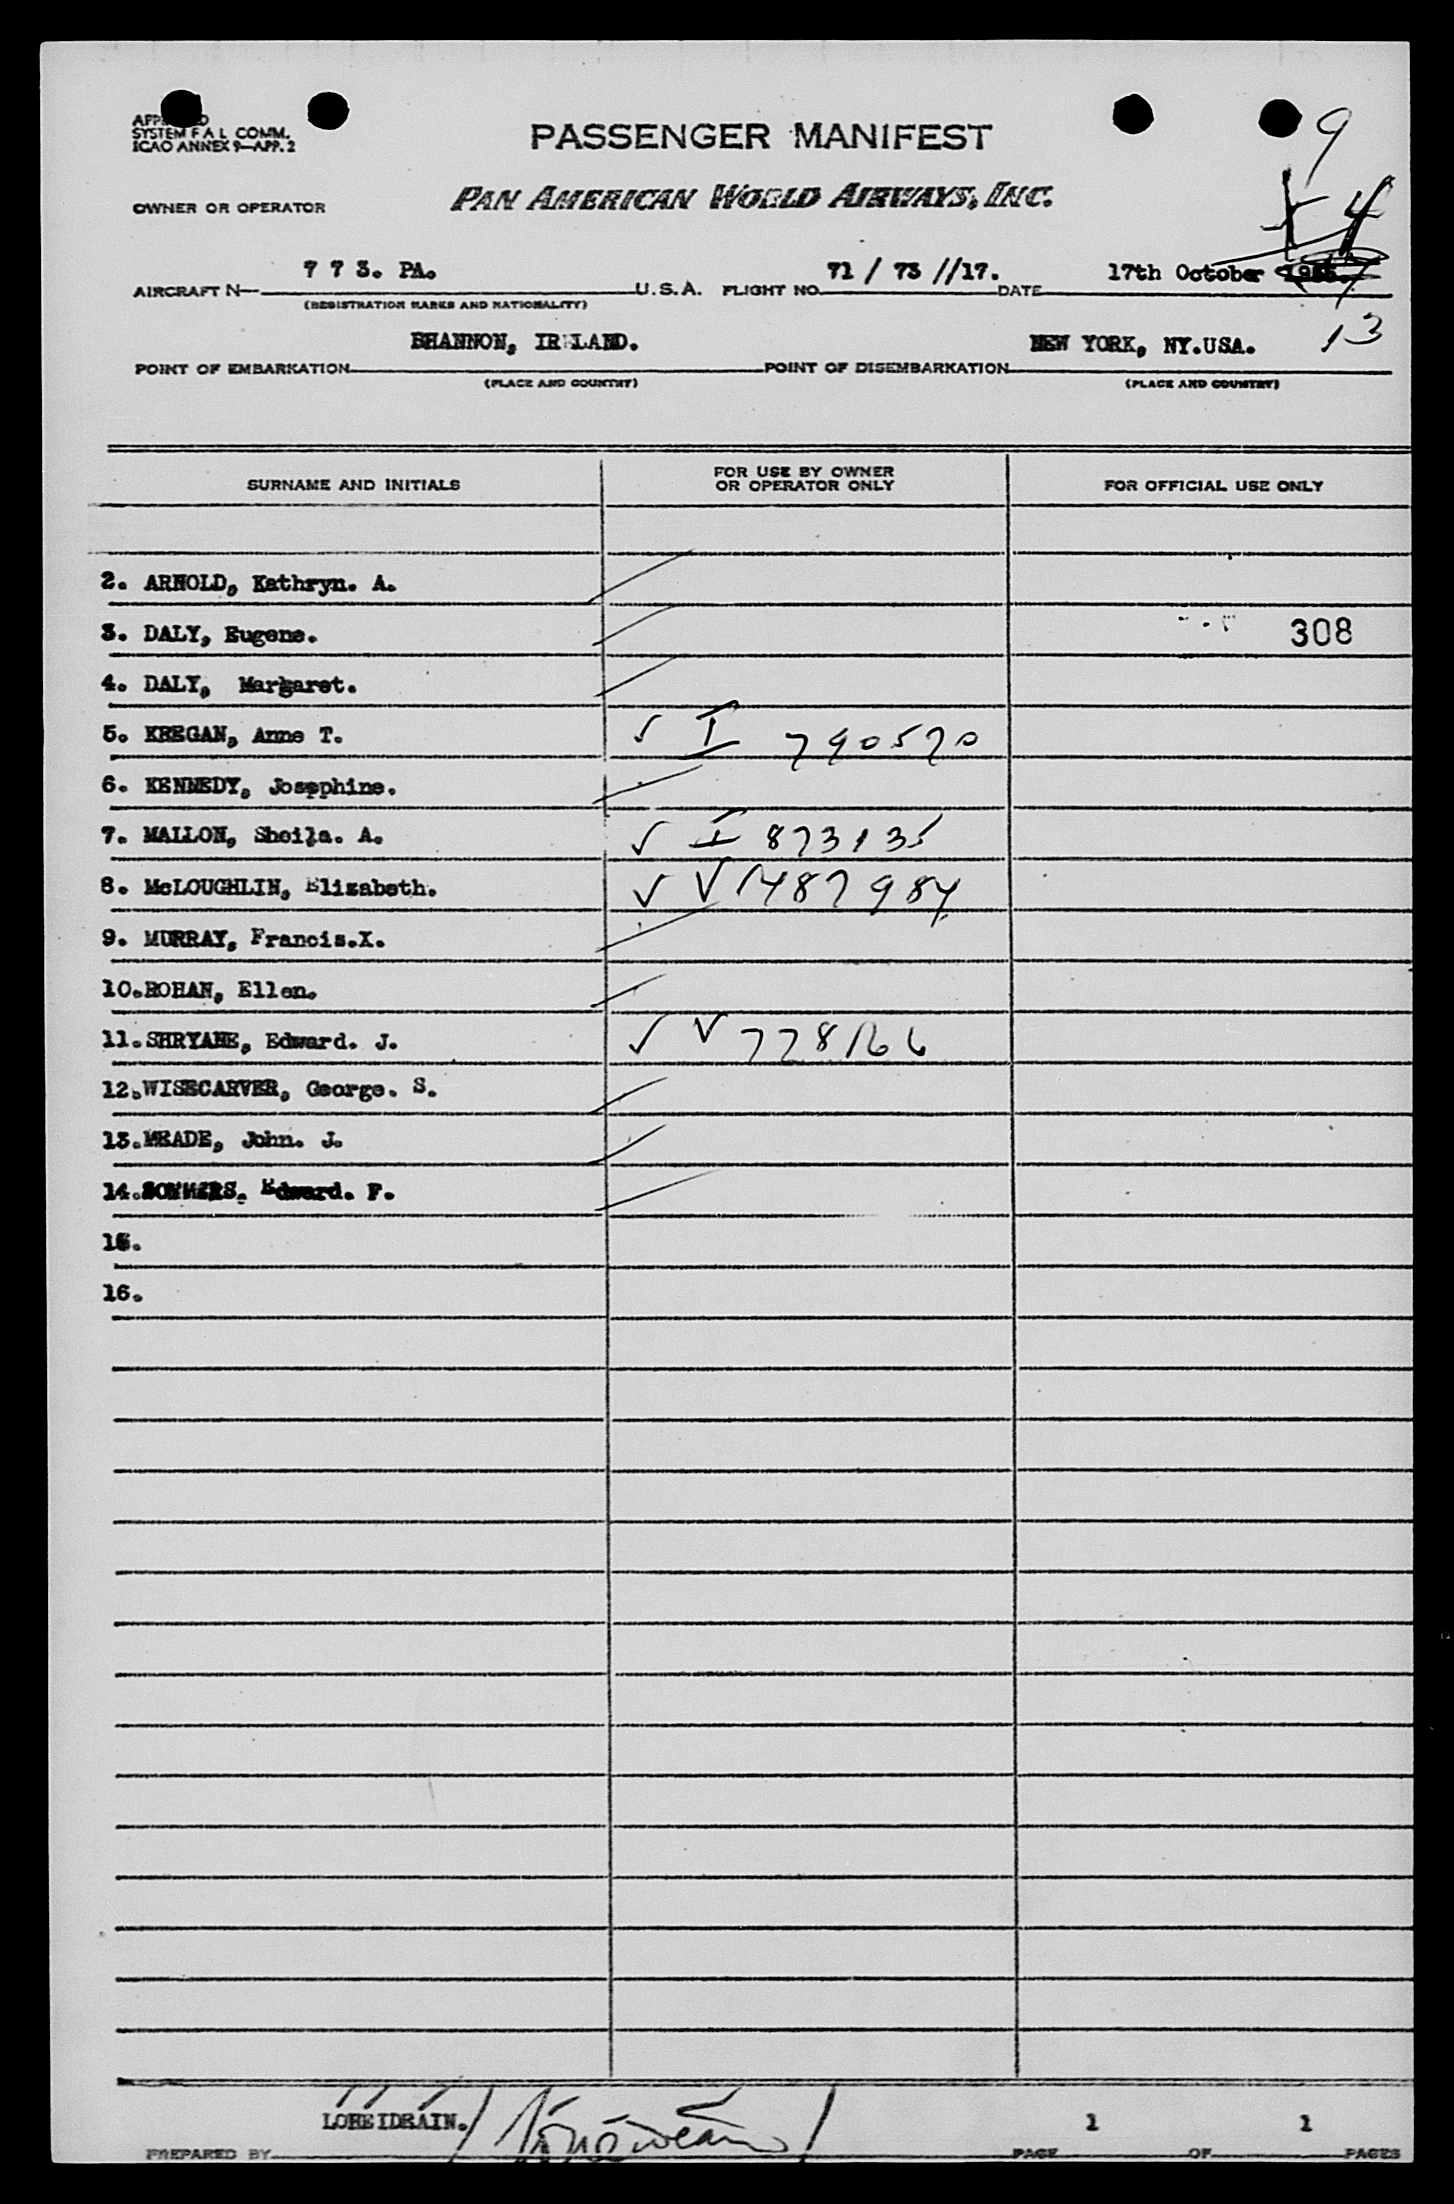 SYSTEM F A L COMM.
ICAO ANNEX 9—APP. 2
PASSENGER MANIFEST
9
OWNER OR OPERATOR
PAN AMERICAN WORLD AIRWAYS, INC.
4
AIRCRAFT N— 7 7 3. PA. U.S.A. FLIGHT NO. 71 / 73 //17. DATE 17th October
(REGISTRATION MARKS AND NATIONALITY)
13
POINT OF EMBARKATION SHANNON, IRELAND. POINT OF DISEMBARKATION NEW YORK, NY.USA.
(PLACE AND COUNTRY) (PLACE AND COUNTRY)
SURNAME AND INITIALS
FOR USE BY OWNER
OR OPERATOR ONLY
FOR OFFICIAL USE ONLY
2. ARNOLD, Kathryn. A.
3. DALY, Eugene. 308
4. DALY, Margaret.
5. KEEGAN, Anne T. ✓ I 790570
6. KENNEDY, Josephine.
7. MALLON, Sheila. A. ✓ I 873135
8. McLOUGHLIN, Elizabeth. ✓ V 1487984
9. MURRAY, Francis.X.
10.ROHAN, Ellen.
11.SHRYANE, Edward. J. ✓ V 778166
12.WISECARVER, George. S.
13.MEADE, John. J.
14.SOMMERS. Edward. F.
15.
16.
PREPARED BY LOHEIDRAIN. PAGE 1 OF 1 PAGES